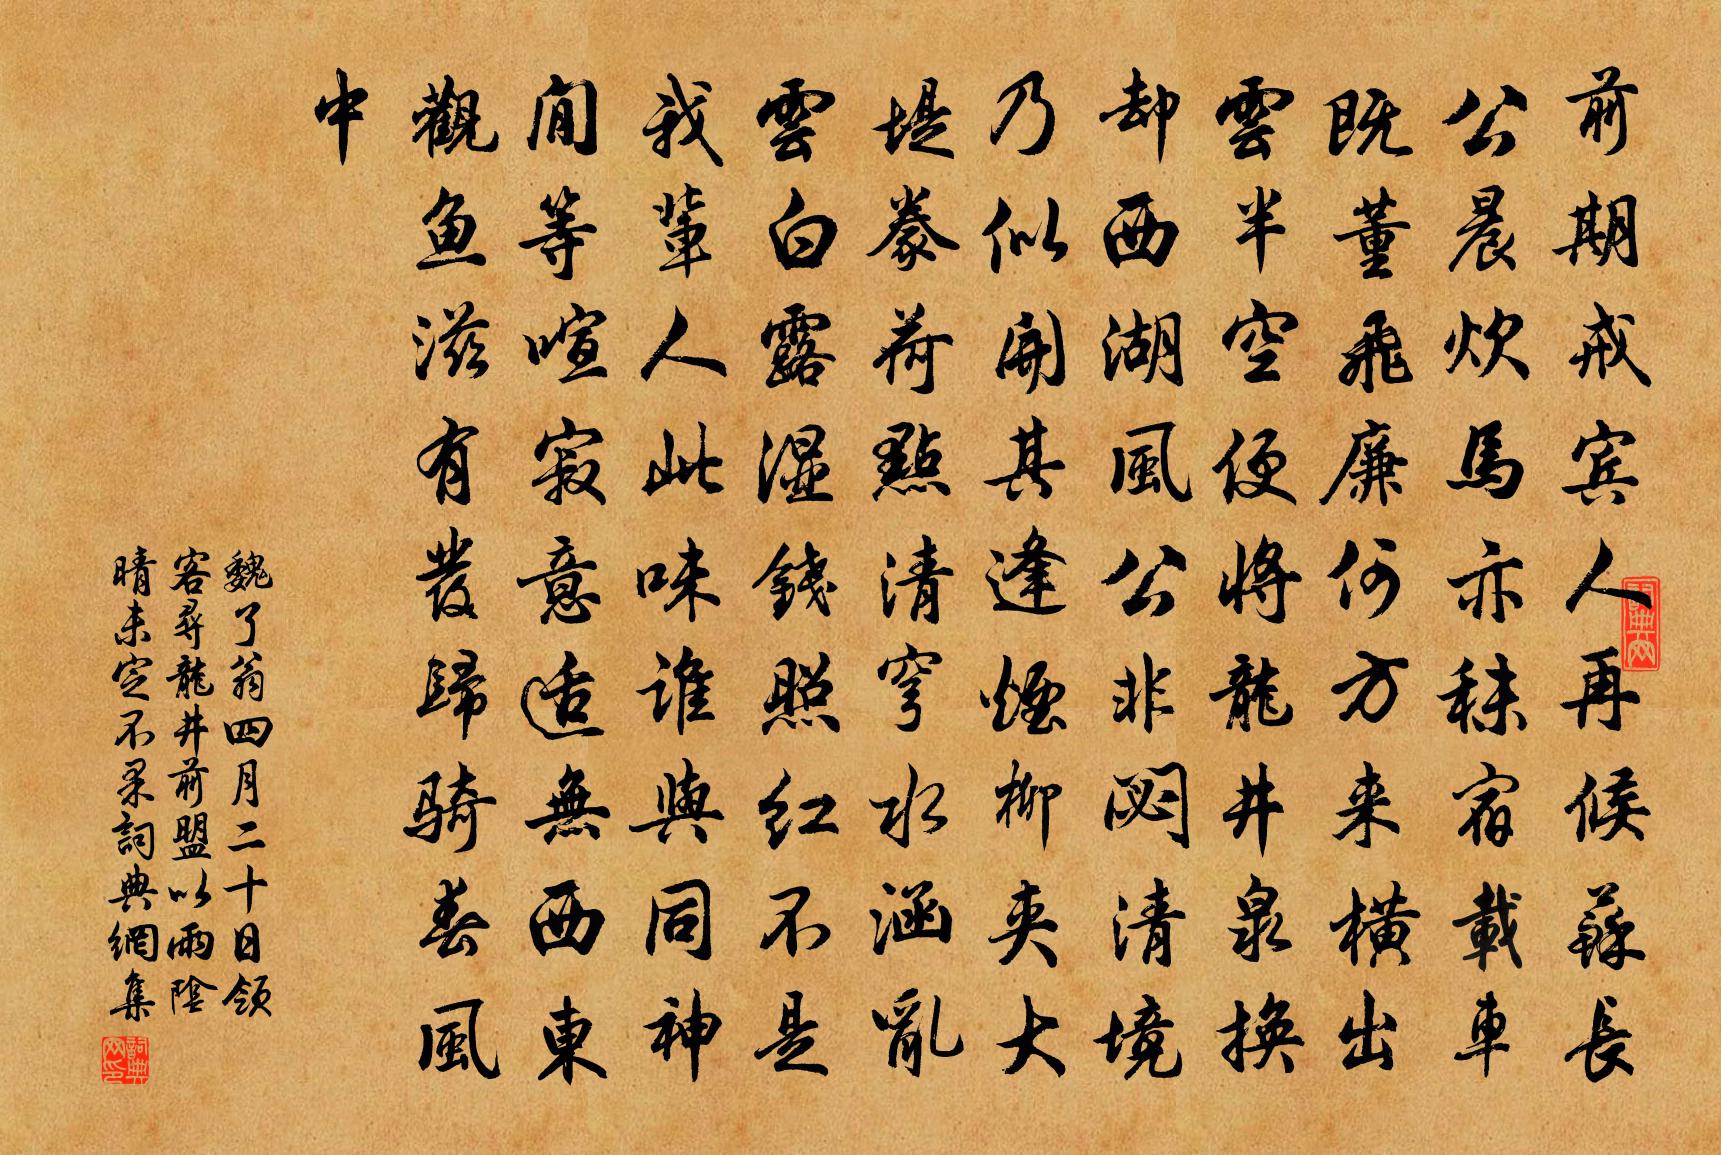 前期戒宾人再候蘇長
公晨炊馬亦秣宿載車
既董飛廉何方来橫出
雲半空便將龍井泉換
却西湖風公非閟清境
乃似開其逢煙柳夾大
堤豢荷點清穹水涵亂
雲白露濕錢照红不是
我輩人此味谁與同神
閒等喧寂意适無西東
觀魚滋有發歸骑春風
中
魏了翁四月二十日領
客尋龍井前盟以雨陰
晴未定不果詞典網集
詞典网
詞典网印